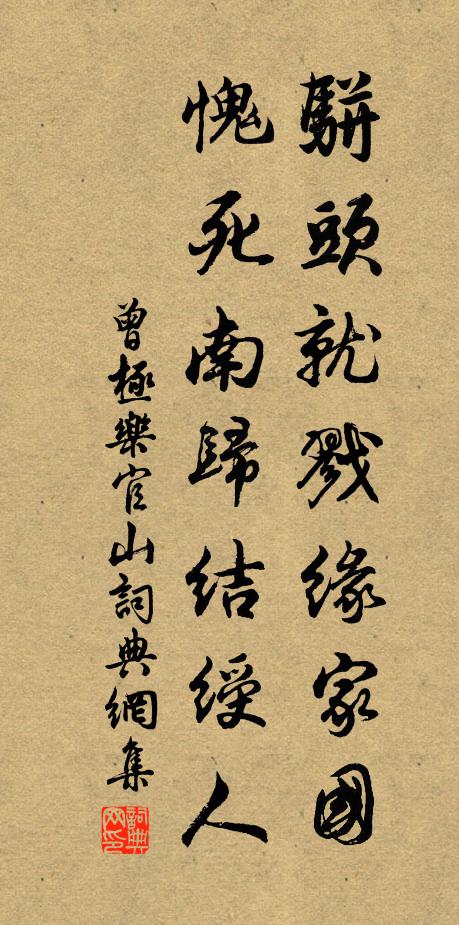 駢頭就戮緣家國
愧死南歸結綬人
曾極樂官山詞典網集
詞典網印